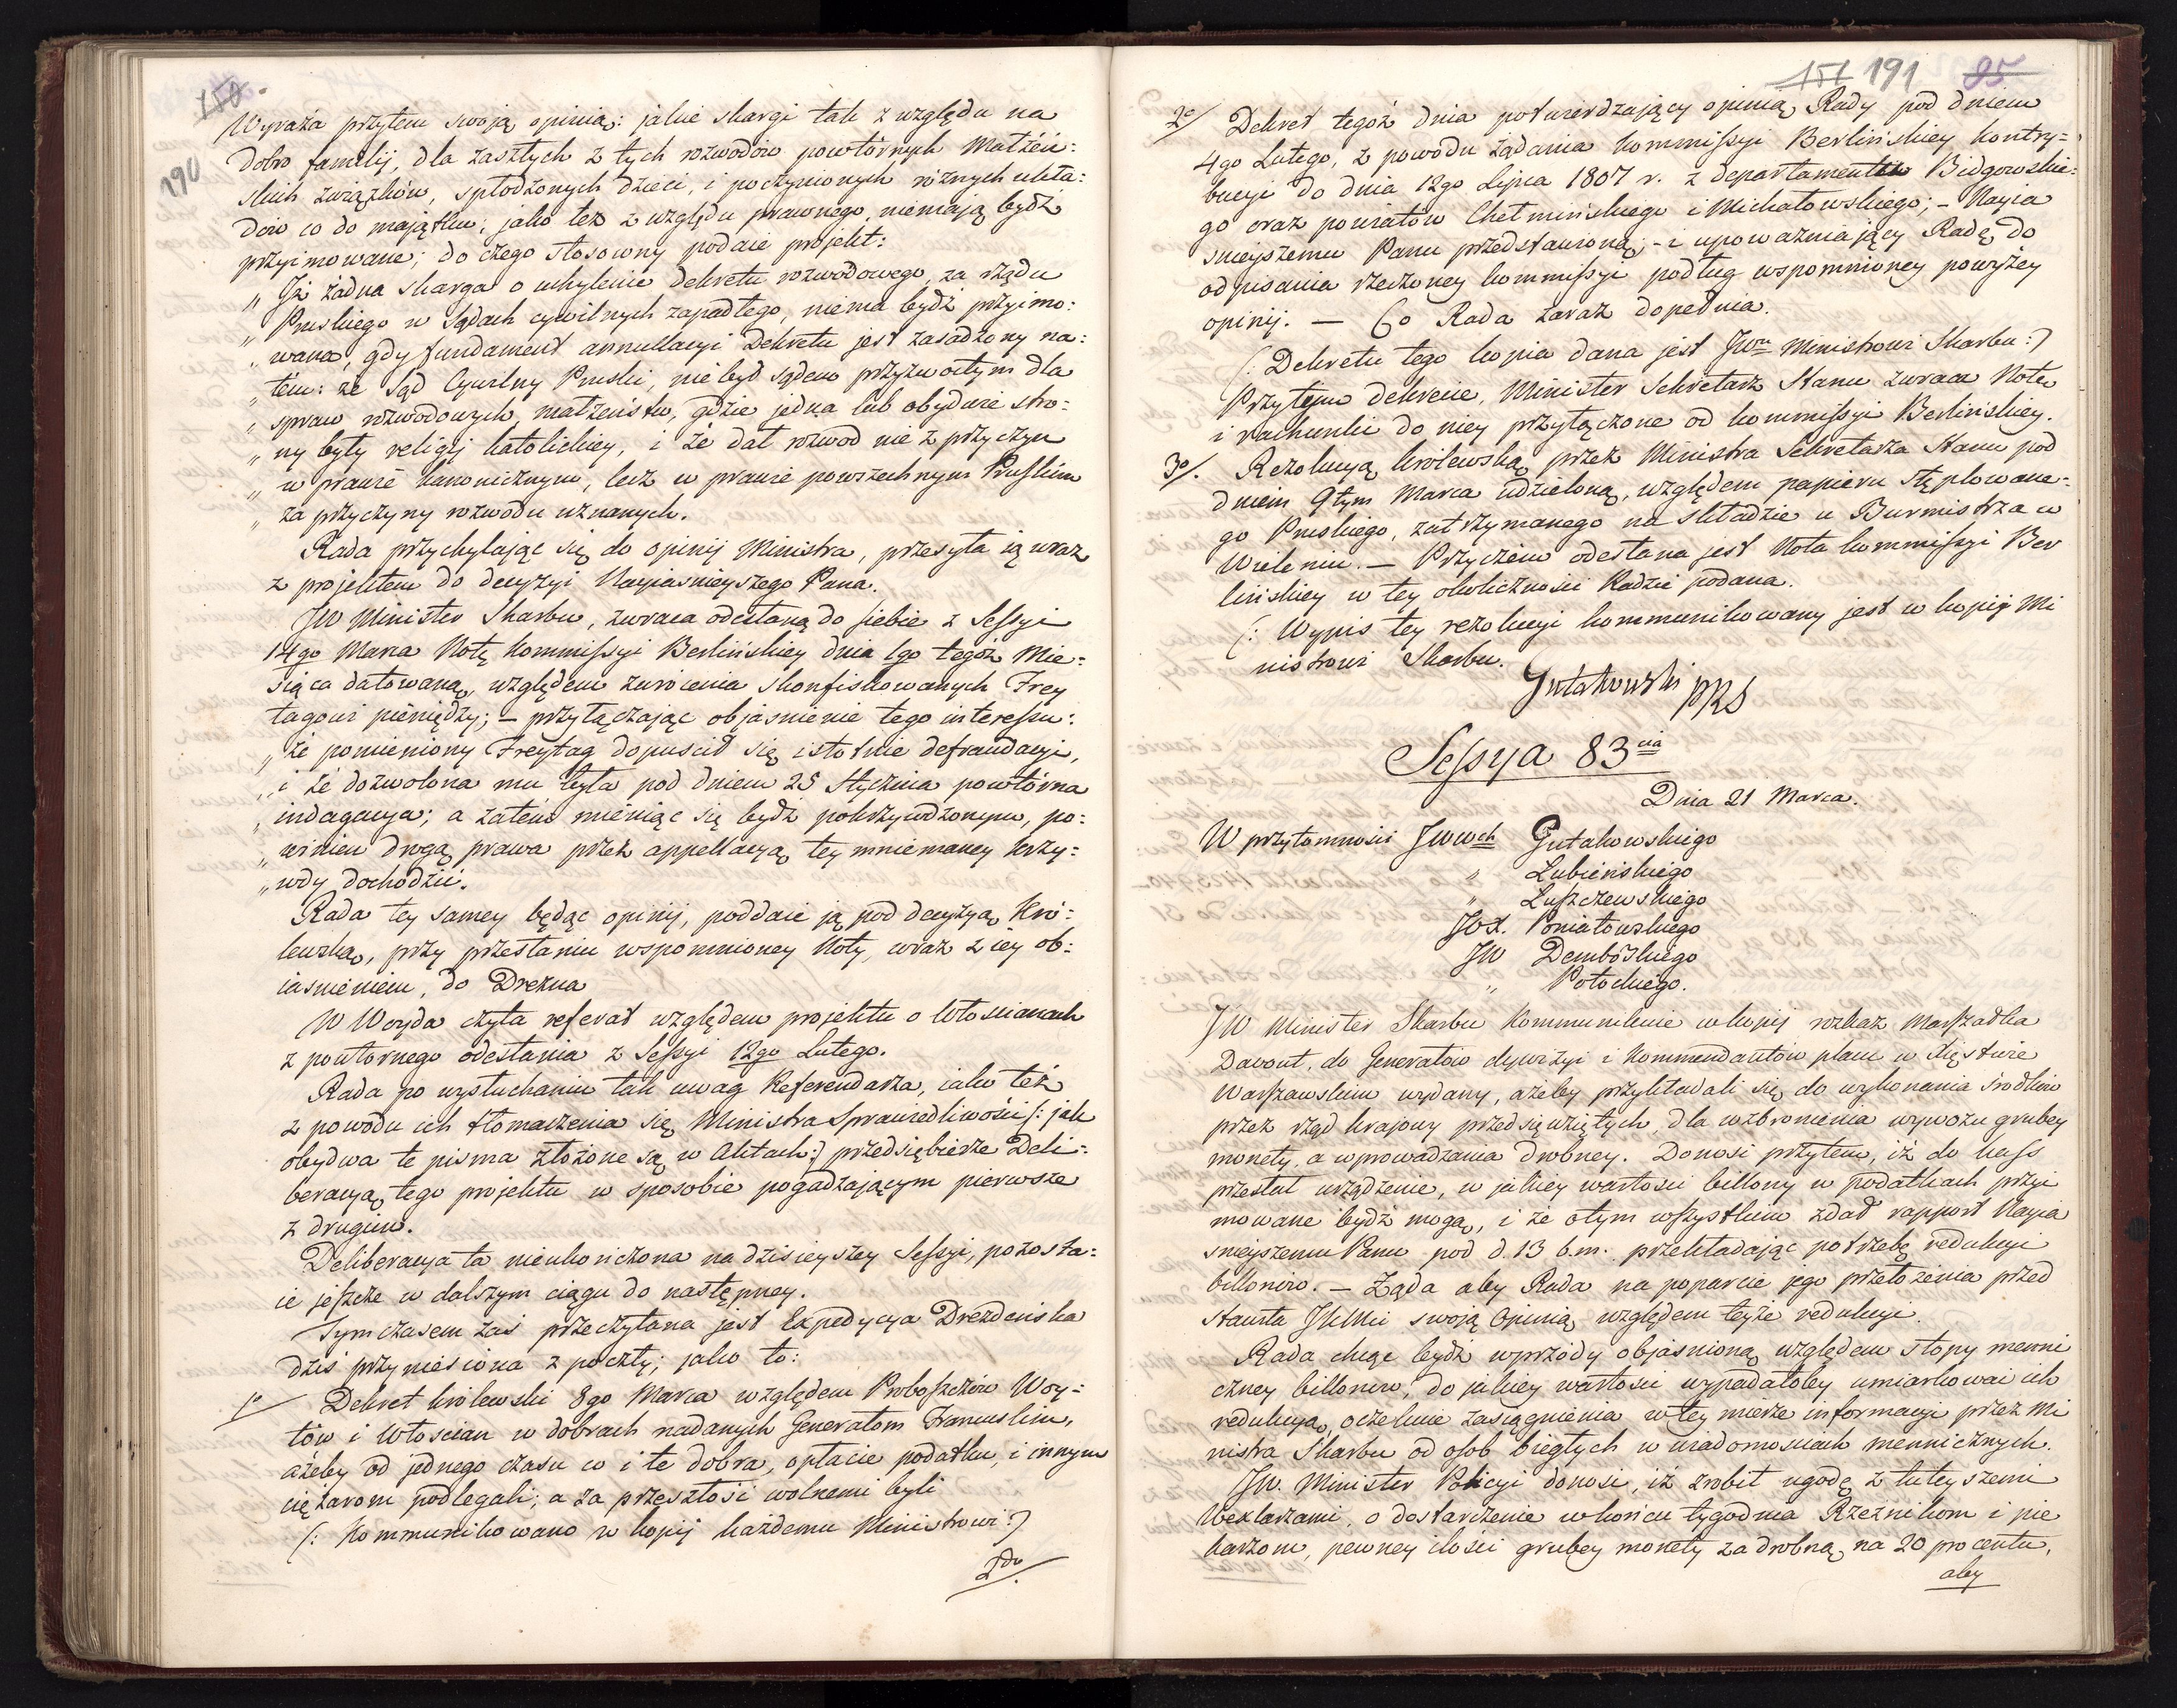 150.
190
Wyraża przytem swoją opinią: jakie skargi tak z względu na
dobro familij, dla zaszłych z tych rozwodów powtórnych Małżeń:
skich związków, spłodzonych dzieci, i poczynionych różnych ukła:
dów co do majątku; jako też z względu prawnego, niemają bydź
przyimowane; do czego stosowny podaie projekt:
„ Iż żadna skarga o uchylenie dekretu rozwodowego, za rządu
„ Pruskiego w Sądach cywilnych zapadłego, niema bydź przyimo:
„ wana, gdy fundament annullacyi Dekretu jest zasadzony na:
„ tém: że Sąd Cywilny Pruski, nie był sądem przyzwoitym dla
„ spraw rozwodowych, małżeństw, gdzie jedna lub obydwie stro:
„ ny były religij katolickiey, i że dał rozwod nie z przyczyn
„ w prawie kanonicznym, lecz w prawie powszechnym Pruskim
„ za przyczyny rozwodu uznanych.
Rada przychylając się do opinij Ministra, przesyła ią wraz
z projektem do decyzyi Nayiaśnieyszego Pana.
JW Minister Skarbu, zwraca odesłaną do siebie z Sessyi
14go Marca Notę Kommissyi Berlińskiey dnia 1go tegoż Mie:
siąca datowaną, względem zwrócenia skonfiskowanych Frey
tagowi pieniędzy; – przyłączając objaśnienie tego interessu:
„ że pomieniony Freytag dopuścił się istotnie defraudacyi,
„ i że dozwolona mu była pod dniem 25 Stycznia powtórna
„ indagacya; a zatém mieniąc się bydź pokrzywdzonym, po:
„ winien drogą prawa przez appellacyą tey mniemaney krzy:
„ wdy dochodzić.
Rada tey samey będąc opinij, poddaie ją pod decyzyą Kró:
lewską, przy przesłaniu wspomnioney Noty, wraz z iéy ob:
iasnieniem, do Drezna
W Woyda czyta referat względem projektu o Włościanach
z powtornego odesłania z Sessyi 12go Lutego.
Rada po wysłuchaniu tak uwag Referendarza, iako też
z powodu ich tłomaczenia się Ministra Sprawiedliwości (: jak
obydwa te pisma złożone są w Aktach:) przedsiębierze Deli:
beracyą tego projektu w sposobie pogadzającym pierwsze
z drugim.
Deliberacya ta nieukończona na dzisieyszey Sessyi, pozosta:
ie jeszcze w dalszym ciągu do następney.
Tymczasem zaś przeczytana jest Expedycya Drezdeńska
dziś przyniesiona z poczty; jako to:
1o/ Dekret królewski 8go Marca względem Proboszczów Woy:
tów i Włościan w dobrach nadanych Generałom Francuskim,
ażeby od jednego czasu co i te dobra, opłacie podatku, i innym
ciężarom podlegali; a za przeszłość wolnemi byli
(: Kommunikowano w kopij każdemu Ministrowi:)
2do/.
151 191 95
2o/ Dekret tegoż dnia potwierdzający opinią Rady pod dniem
4go Lutego, z powodu żądania Kommissyi Berlińskiey kontry:
bucyi do dnia 12go Lipca 1807 r. z departamentu Bidgowskie:
go oraz powiatów Chełmińskiego i Michałowskiego; – Nayia
śnieyszemu Panu przedstawioną; – i upoważniający Radę do
odpisania rzeczoney kommissyi podług wspomnioney powyżéy
opinij. — Co Rada zaraz dopełnia.
(: Dekretu tego kopia dana jest JWu Ministrowi Skarbu:)
Przytym dekrecie, Minister Sekretarz Stanu zwraca Notę
i rachunki do niey przyłączone od kommissyi Berlińskiey.
3o/. Rezolucyą królewską przez Ministra Sekretarza Stanu pod
dniem 9tym Marca udzieloną, względem papieru stęplowane:
go Pruskiego, zatrzymanego na składzie u Burmistrza w
Wieleniu. — Przyczém odesłana jest Nota kommissyi Ber
lińskiey w tey okoliczności Radzie podana.
(: Wypis tey rezolucyi kommunikowany jest w kopij Mi
nistrowi Skarbu.
Gutakowski PRS
Sessya 83cia
Dnia 21 Marca.
W przytomności JWWch Gutakowskiego
„ Łubieńskiego
„ Łuszczewskiego
JOX. Poniatowskiego
JW Dembowskiego
„ Potockiego.
JW Minister Skarbu Kommunikuie w kopij rozkaz Marszałka
Davout, do Generałów dywizyi i Kommendantów placu w Xięstwie
Warszawskim wydany, ażeby przykładali się do wykonania środków
przez rząd krajowy przedsięwziętych, dla wzbronienia wywozu grubey
monety, a wprowadzania drobney. Donosi przytem, iż do kass
przesłał urządzenie, w jakiey wartości billony w podatkach przyi
mowane bydź mogą, i że otym wszystkim zdał rapport Nayia
śnieyszemu Panu pod d. 13 b.m. przekładając potrzebę redukcyi
billonów. — Żąda aby Rada na poparcie jego przełożenia przed
stawiła JKMci swoją opinią względem teyże redukcyi.
Rada chcąc bydź wprzódy objaśnioną względem stopy menni
czney billonów, do jakiey wartości wypadałoby umiarkować ich
redukcyą, oczekuie zasiągnienia w tey mierze informacyi przez Mi
nistra Skarbu od osob biegłych w wiadomościach mennicznych.
JW. Minister Policyi donosi, iż zrobił ugodę z tuteyszemi
Wexlarzami, o dostarczenie w końcu tygodnia Rzeźnikom i pie
karzom, pewney ilości grubey monety za drobną na 20 procentu,
aby